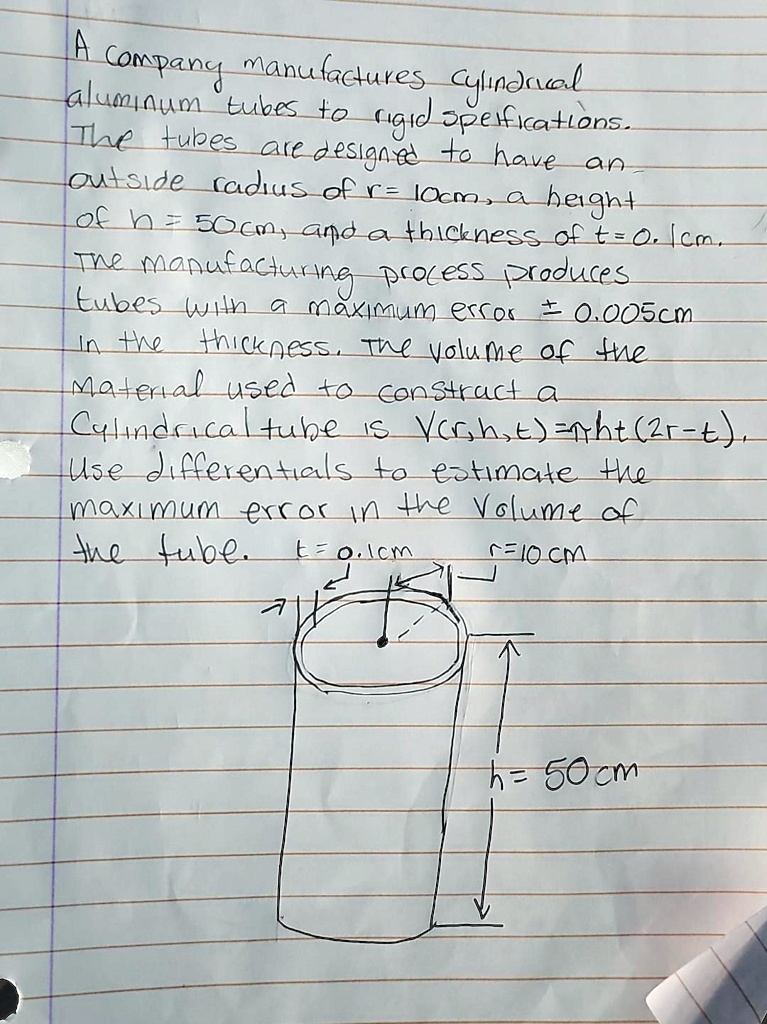 A company manufactures cylindrical
aluminum tubes to rigid speifications.
The tubes are designed to have an
outside radius of r = 10cm, a height
of h = 50cm, and a thickness of t = 0.1cm.
The manufacturing process produces
tubes with a maximum error ± 0.005cm
in the thickness. The volume of the
material used to construct a
Cylindrical tube is V(r,h,t)=πht(2r-t).
Use differentials to estimate the
maximum error in the Volume of
the tube. t=0.1cm r=10cm
h= 50cm